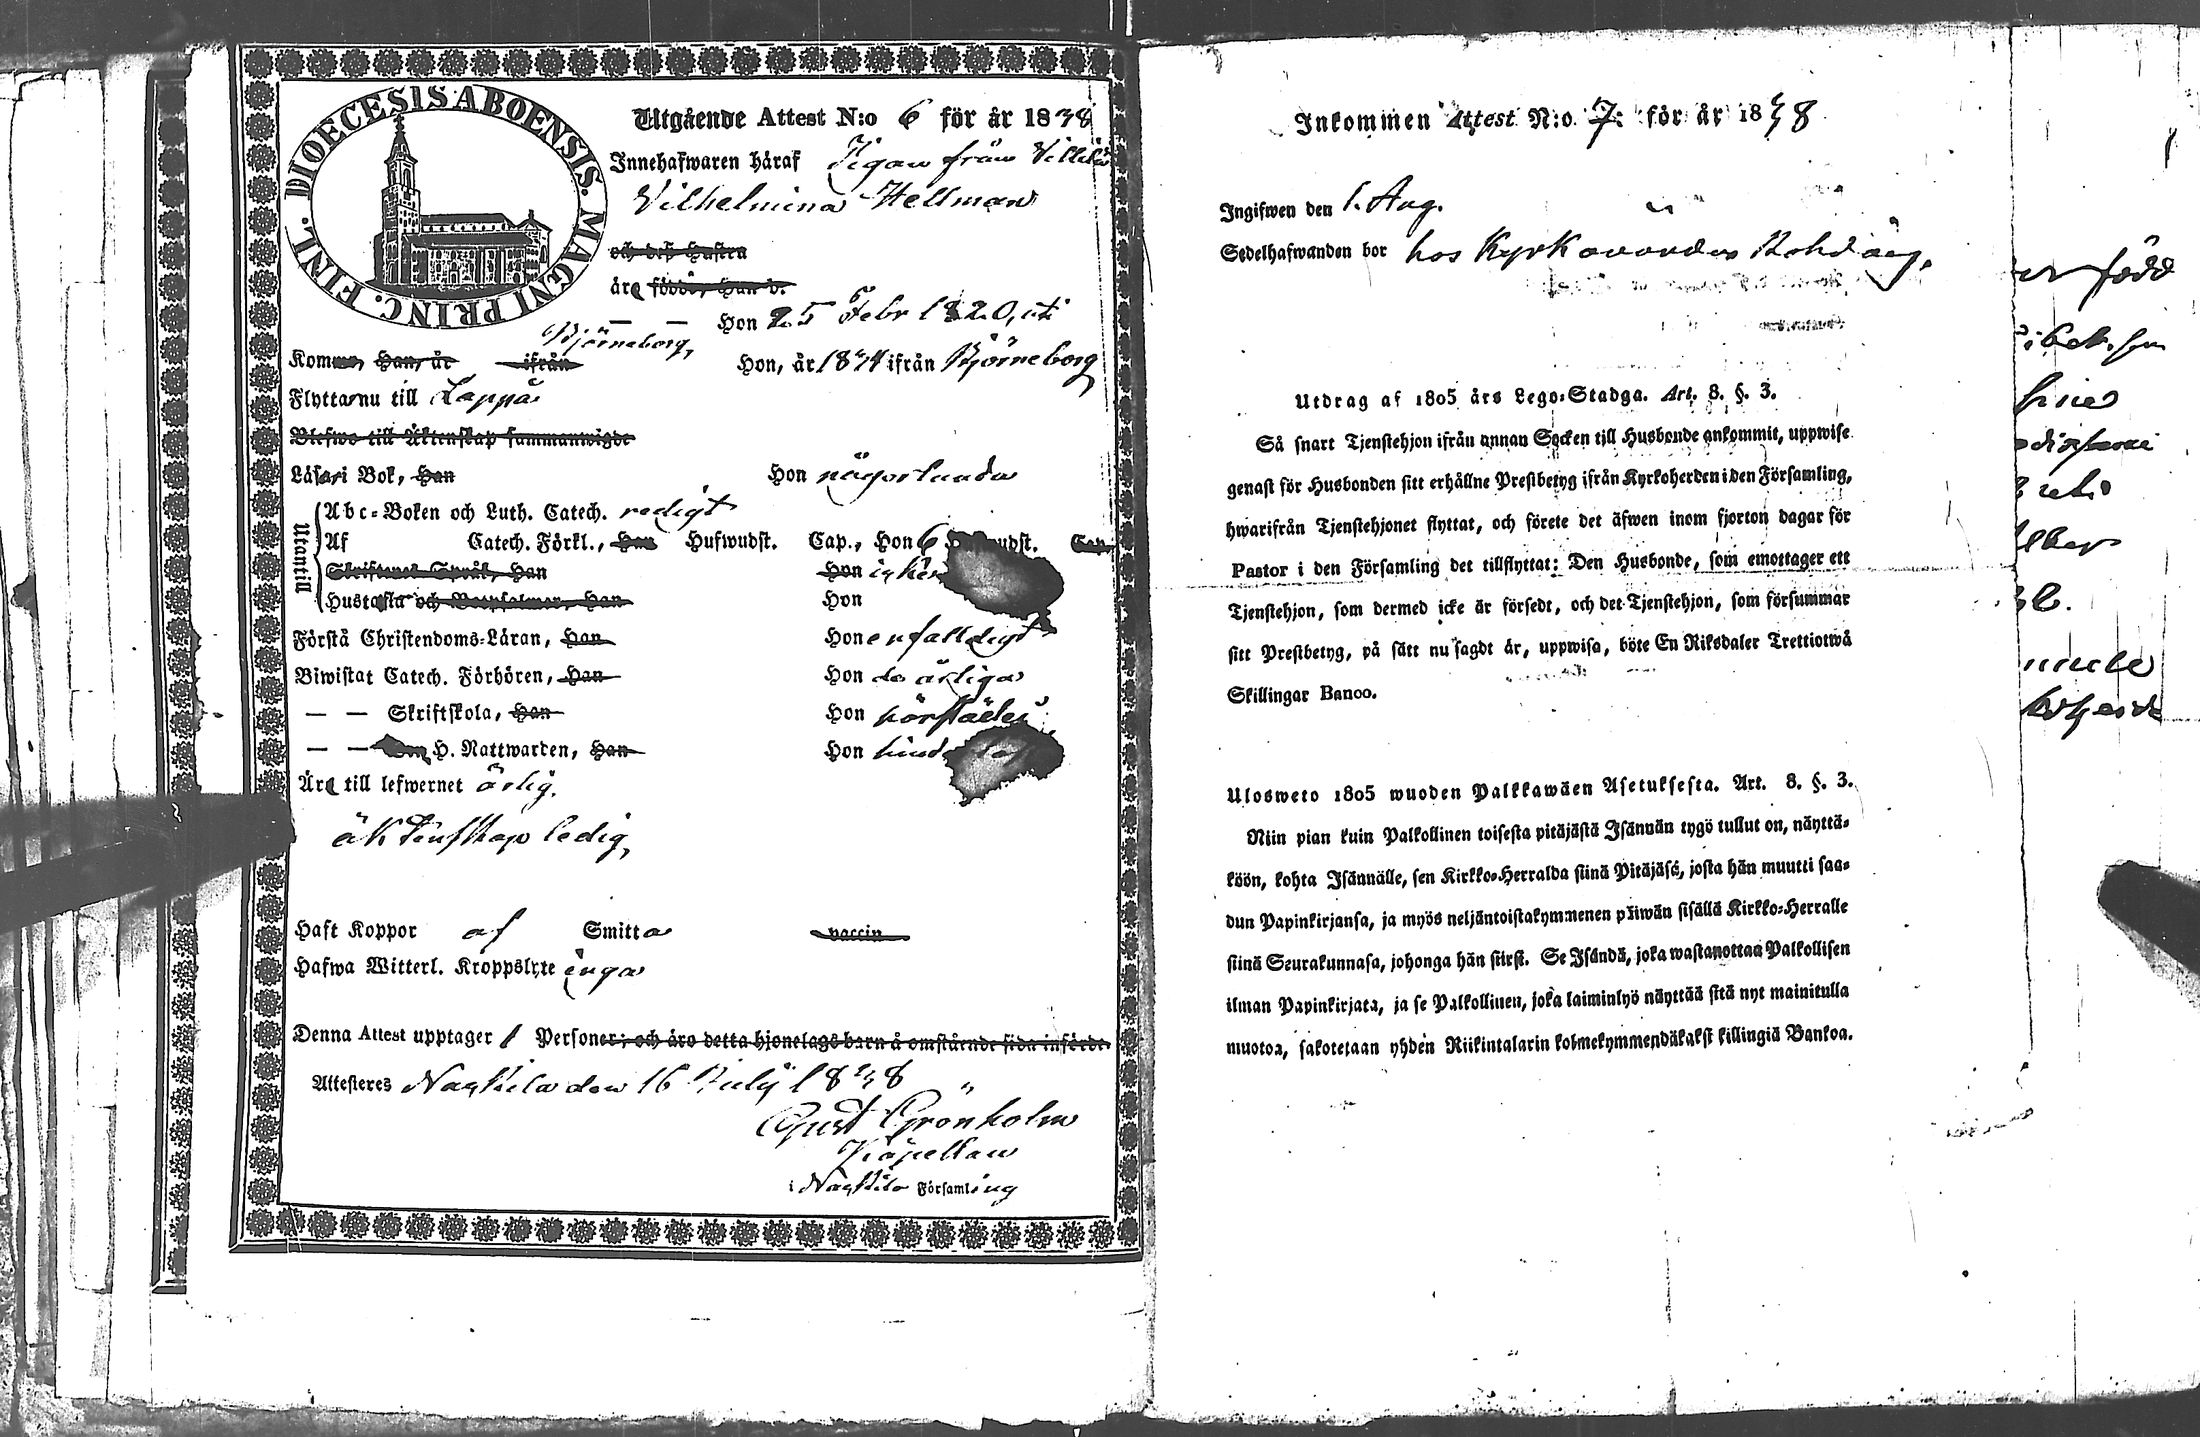 DIOECESIS ABOENSIS. MAGNI PRINC. FINL.
Utgående Attest N:o 6 för år 1838
Innehafwaren håraf Pigan från
Vilhelmina Hellman
och deß Hustru
äro födde, Han d.
— — Hon 25 Febr 1820, uti
Björneborg,
Kommo, Han, år ifrån Hon, år 1834 ifrån Björneborg
Flyttar nu till Lappå
Blefwo till Äktenskap sammanwigde
Läsa i Bok, Han Hon någorlunda
Utantill
Abc-Boken och Luth. Catech. redigt
Af Catech. Förkl., Han Hufwudst. Cap., Hon 6 Hufwudst. Cap.
Skriftenes Språk, Han Hon
Hustafla och Botpsalmer, Han Hon
Förstå Christendoms-Läran, Han Hon enfalldigt
Biwistat Catech. Förhören, Han Hon de årliga
— — Skriftskola, Han Hon
— — Den H. Nattwarden, Han Hon
Äro till lefwernet ärlig,
äktenskap ledig,
Haft Koppor af Smitta vaccin
Hafwa Witterl. Kroppslyte inga
Denna Attest upptager 1 Personer; och äro detta hjonelags barn å omstående sida införde.
Attesteras Nakkila den 16 Julij 1838
Gust Grönholm
Kapellan
i Nakkila Församling
Inkommen Attest N:o 7: för år 1838
Ingifwen den 1. Aug.
Sedelhafwanden bor hos Kyrkovärden
Utdrag af 1805 års Lego-Stadga. Art. 8. §. 3.
Så snart Tjenstehjon ifrån annan Socken till Husbonde ankommit, uppwise
genast för Husbonden sitt erhållne Prestbetyg ifrån Kyrkoherden i den Församling,
hwarifrån Tjenstehjonet flyttat, och förete det äfwen inom fjorton dagar för
Pastor i den Församling det tillflyttat: Den Husbonde, som emottager ett
Tjenstehjon, som dermed icke är försedt, och det Tjenstehjon, som försummar
sitt Prestbetyg, på sätt nu sagdt är, uppwisa, böte En Riksdaler Trettiotwå
Skillingar Banco.
Ulosweto 1805 wuoden Palkkawäen Asetuksesta. Art. 8. §. 3.
Niin pian kuin Palkollinen toisesta pitäjästä Isännän tygö tullut on, näyttä-
köön, kohta Isännälle, sen Kirkko-Herralda siinä Pitäjäsä, josta hän muutti saa-
dun Papinkirjansa, ja myös neljäntoistakymmenen päiwän sisällä Kirkko-Herralle
siinä Seurakunnasa, johonga hän siirst. Se Isändä, joka wastanottaa Palkollisen
ilman Papinkirjata, ja se Palkollinen, joka laiminlyö näyttää sitä nyt mainitulla
muotoa, sakotetaan yhden Riikintalarin kolmekymmendäkakst killingiä Bankoa.